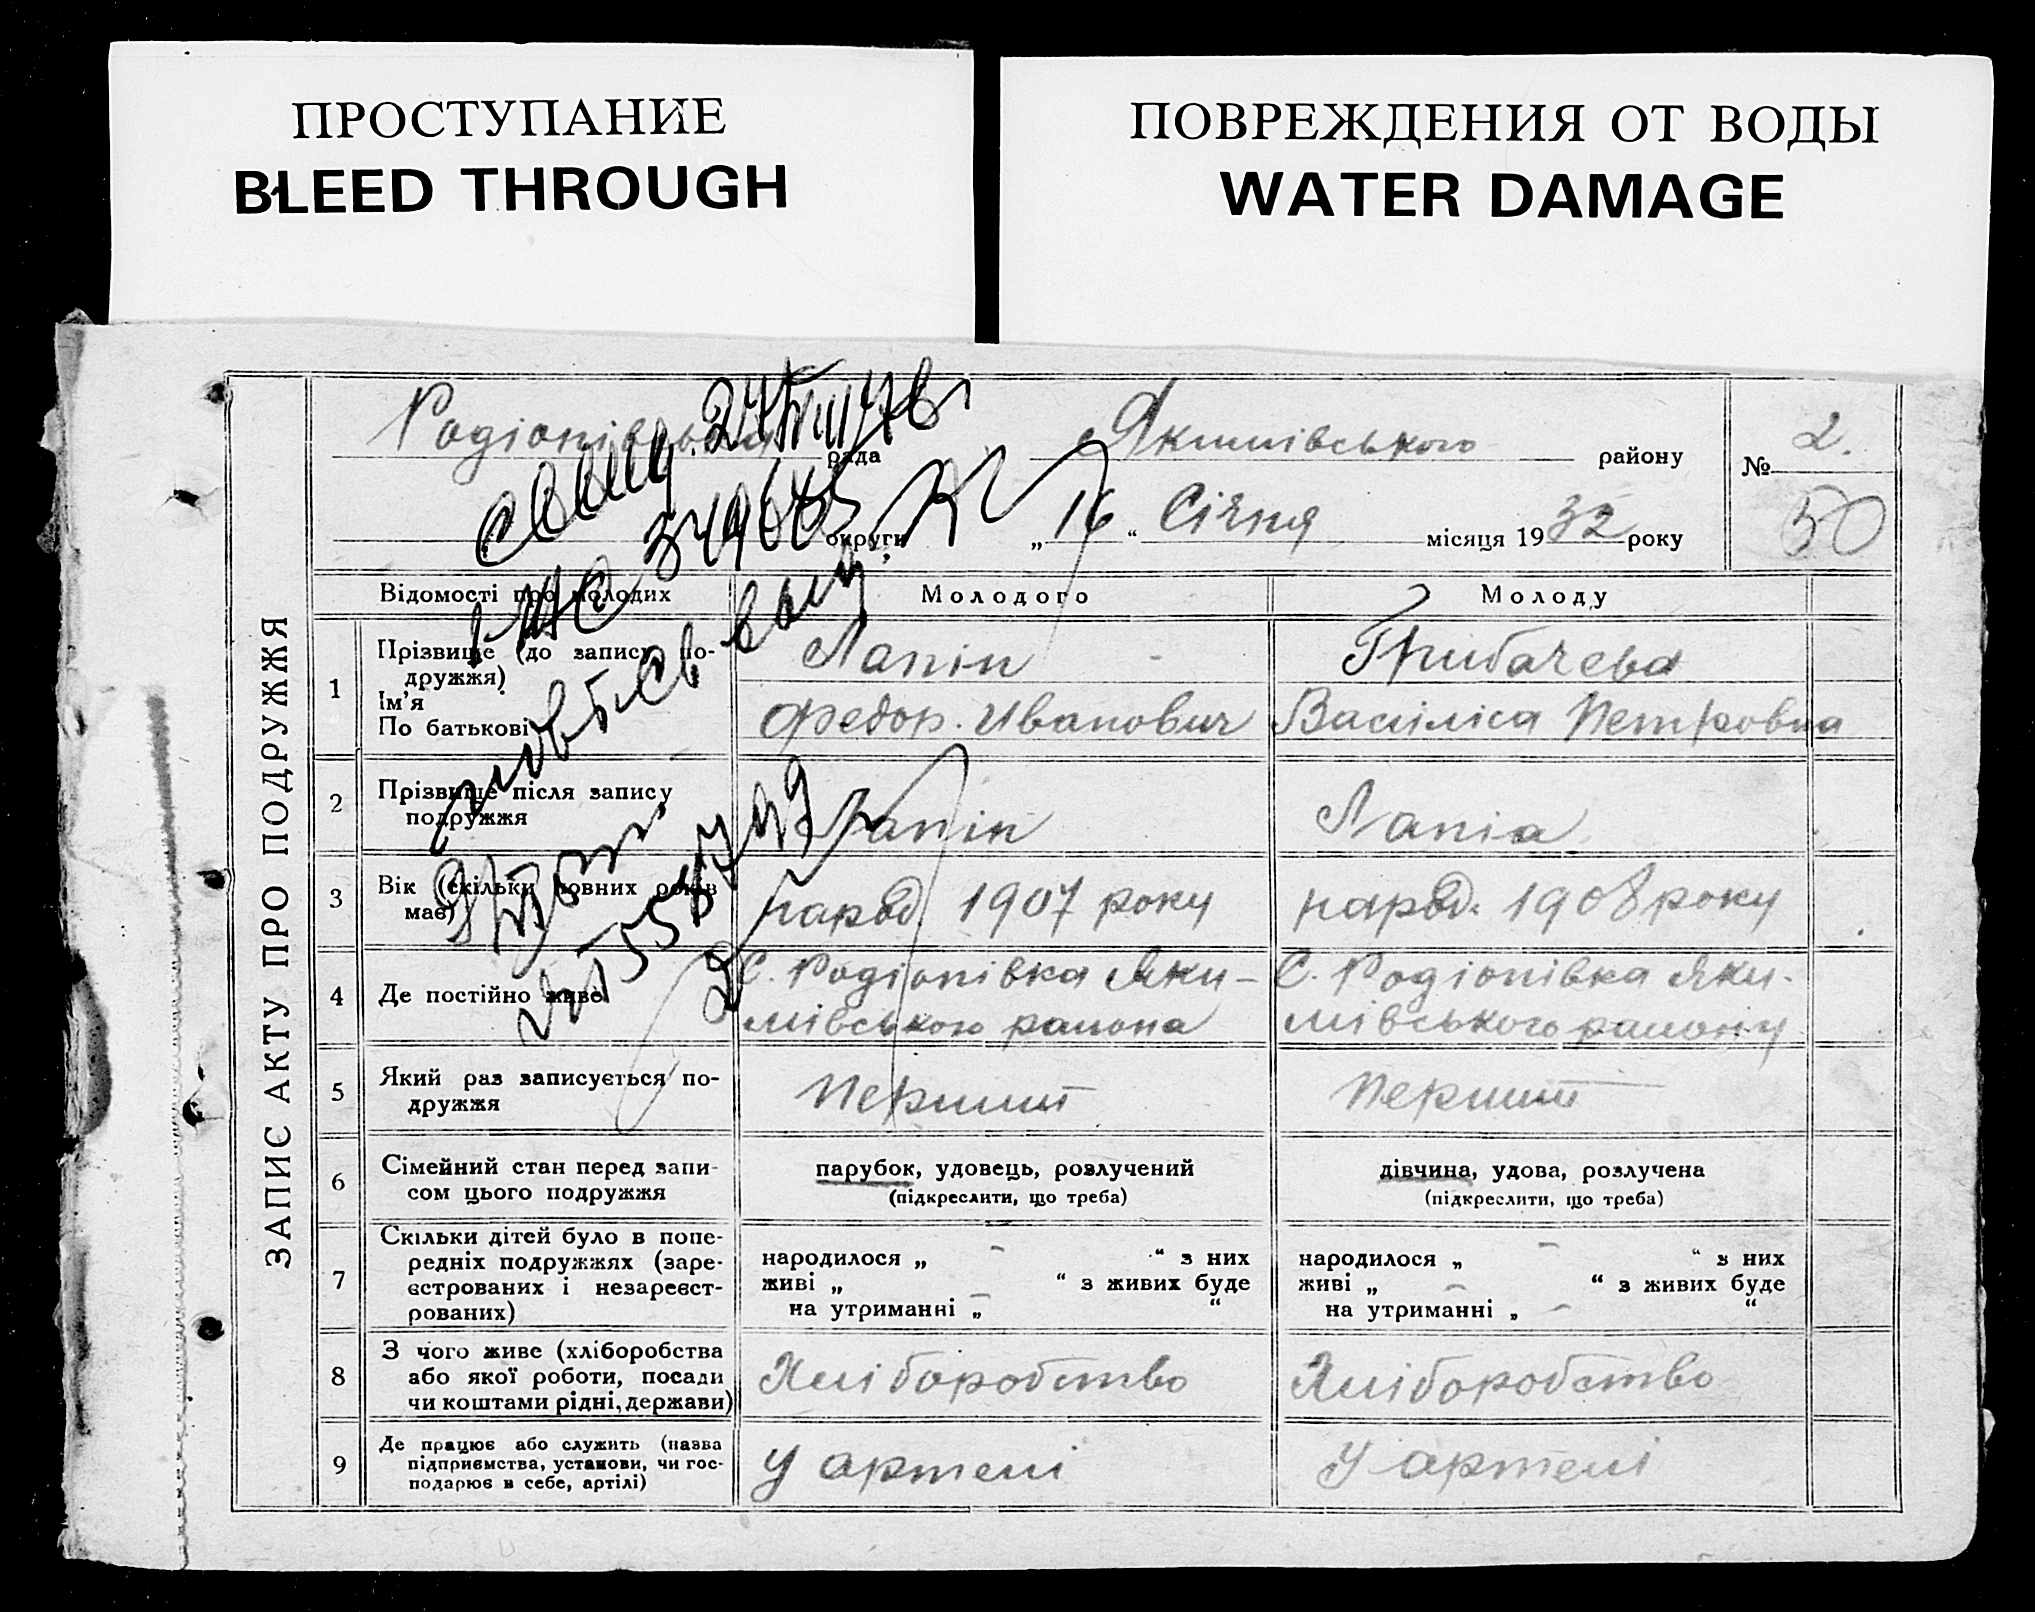 ПРОСТУПАНИЕ
BLEED THROUGH
ПОВРЕЖДЕНИЯ ОТ ВОДЫ
WATER DAMAGE
ЗАПИС АКТУ ПРО ПОДРУЖЖЯ
рада Якимівського району
№ 2.
округи, „16“ Січня місяця 1932 року
50
Відомості про молодих Молодого Молоду
1 Прізвище (до запису по-
дружжя)
Ім'я
По батькові
Лапін
Федор. Иванович
Грибачева
Василіса Петровна
2 Прізвище після запису
подружжя
Лапін
Лапіа
3 Вік (скільки повних років
має)
народ. 1907 року
народ. 1908 року
4 Де постійно живе
С. Родіонівка Яки-
мівського района
С. Родіонівка Яки-
мівського району
5 Який раз записується по-
дружжя
Перший
Перший
6 Сімейний стан перед запи-
сом цього подружжя
парубок, удовець, розлучений
(підкреслити, що треба)
дівчина, удова, розлучена
(підкреслити, що треба)
7 Скільки дітей було в попе-
редніх подружжях (заре-
єстрованих і незареєст-
рованих)
народилося „ - “ з них
живі „ - “ з живих буде
на утриманні „ - “
народилося „ - “ з них
живі „ - “ з живих буде
на утриманні „ - “
8 З чого живе (хліборобства
або якої роботи, посади
чи коштами рідні, держави)
Хліборобство
Хліборобство
9 Де працює або служить (назва
підприємства, установи, чи гос-
подарює в себе, артілі)
У артелі
У артелі